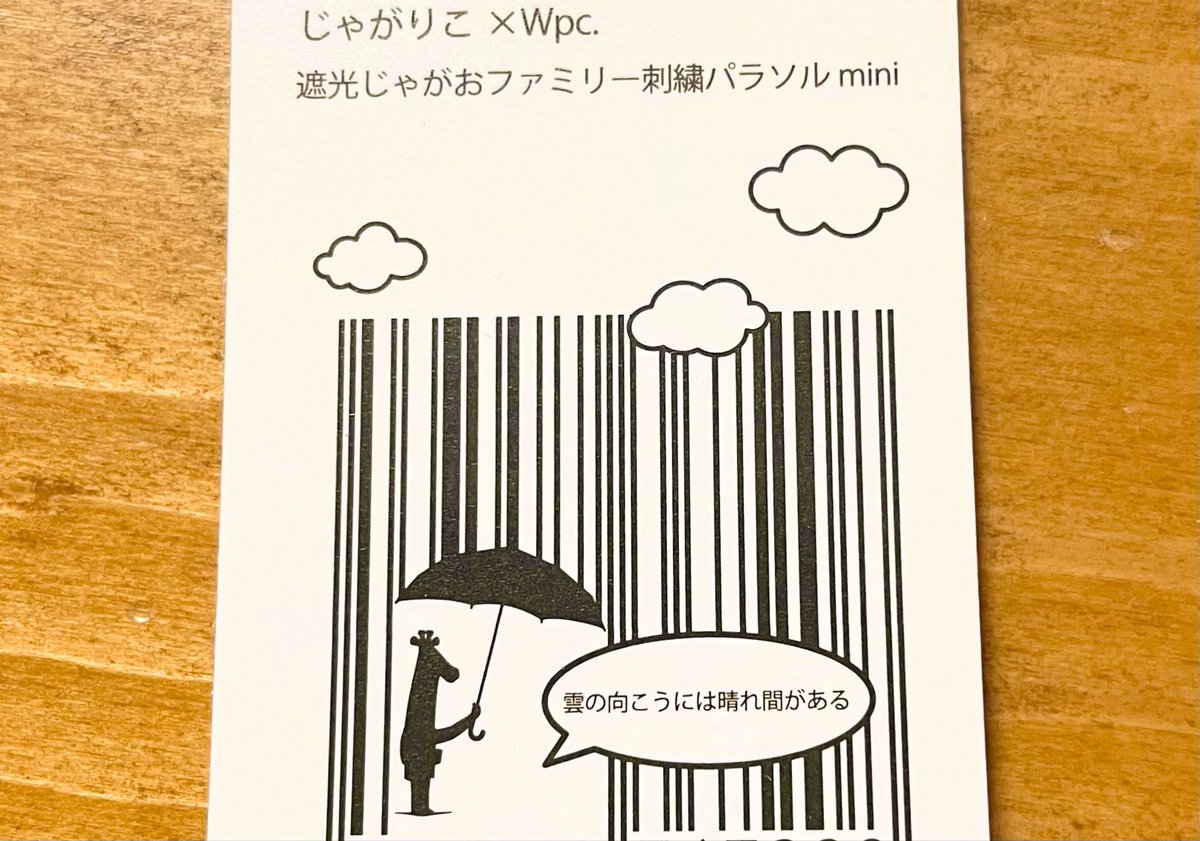 じゃがりこ ×Wpc.
遮光じゃがおファミリー刺繍パラソル mini
雲の向こうには晴れ間がある